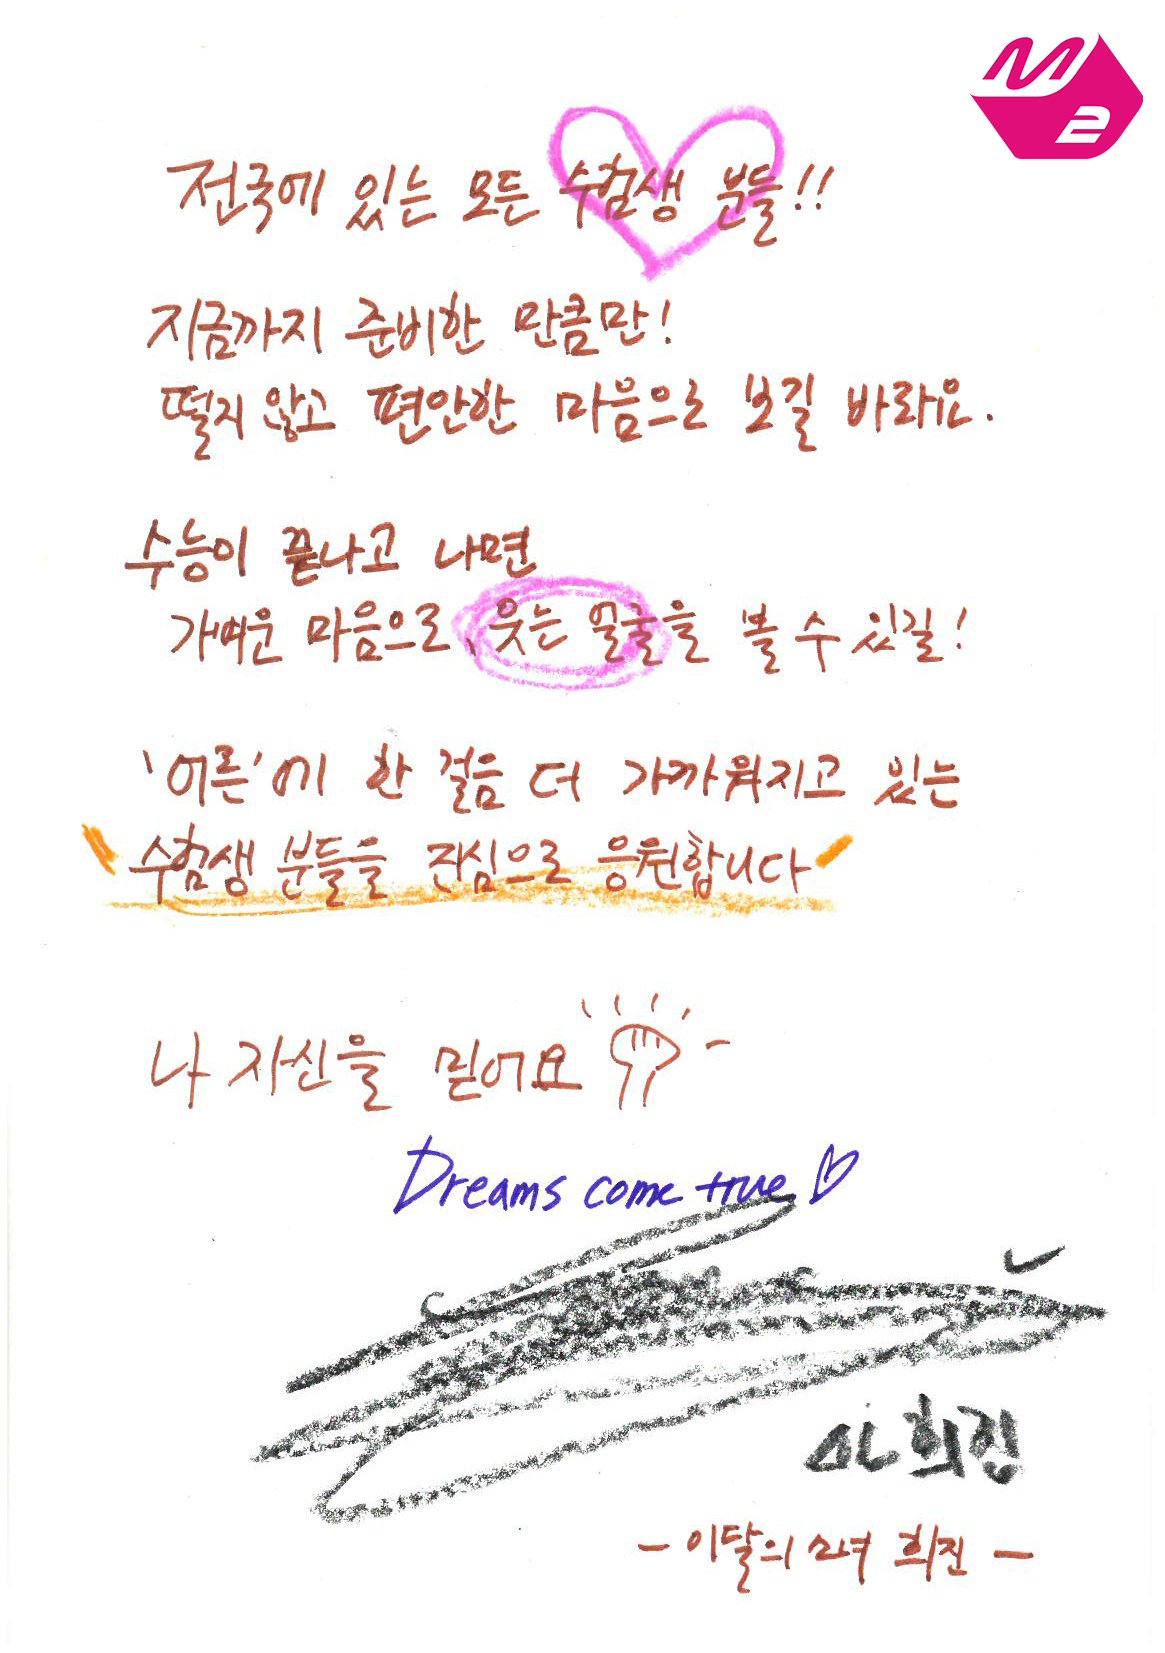 M2
전국에 있는 모든 수험생 분들!!
지금까지 준비한 만큼만!
떨지 않고 편안한 마음으로 보길 바라요.
수능이 끝나고 나면
가벼운 마음으로, 웃는 얼굴을 볼 수 있길!
'어른'에 한 걸음 더 가까워지고 있는
수험생 분들을 진심으로 응원합니다
나 자신을 믿어요
Dreams come true
희진
-이달의 소녀 희진-